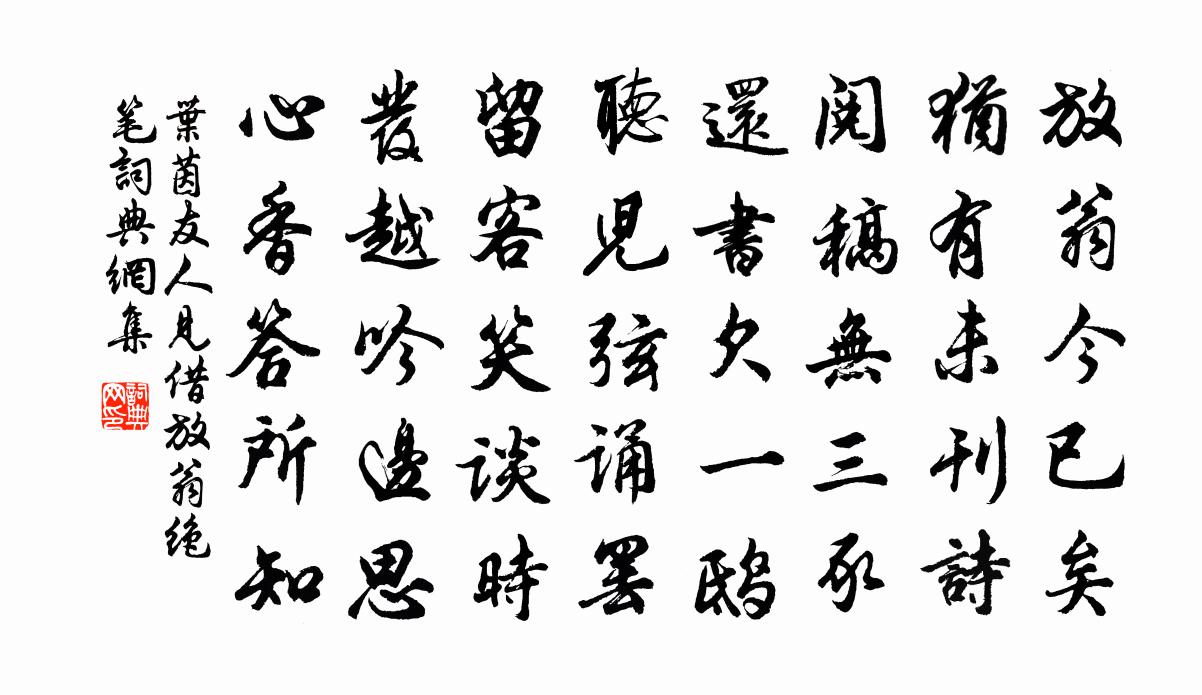 放翁今已矣
猶有未刊詩
閱稿無三豕
還書欠一鴟
聽兒弦誦罷
留客笑談時
發越吟邊思
心香答所知
葉茵友人見借放翁絶
笔詞典網集
詞典網印